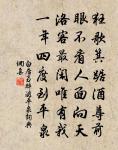 狂歌箕踞酒尊前
眼不看人面向天
洛客最閑唯有我
一年四度到平泉
白居易